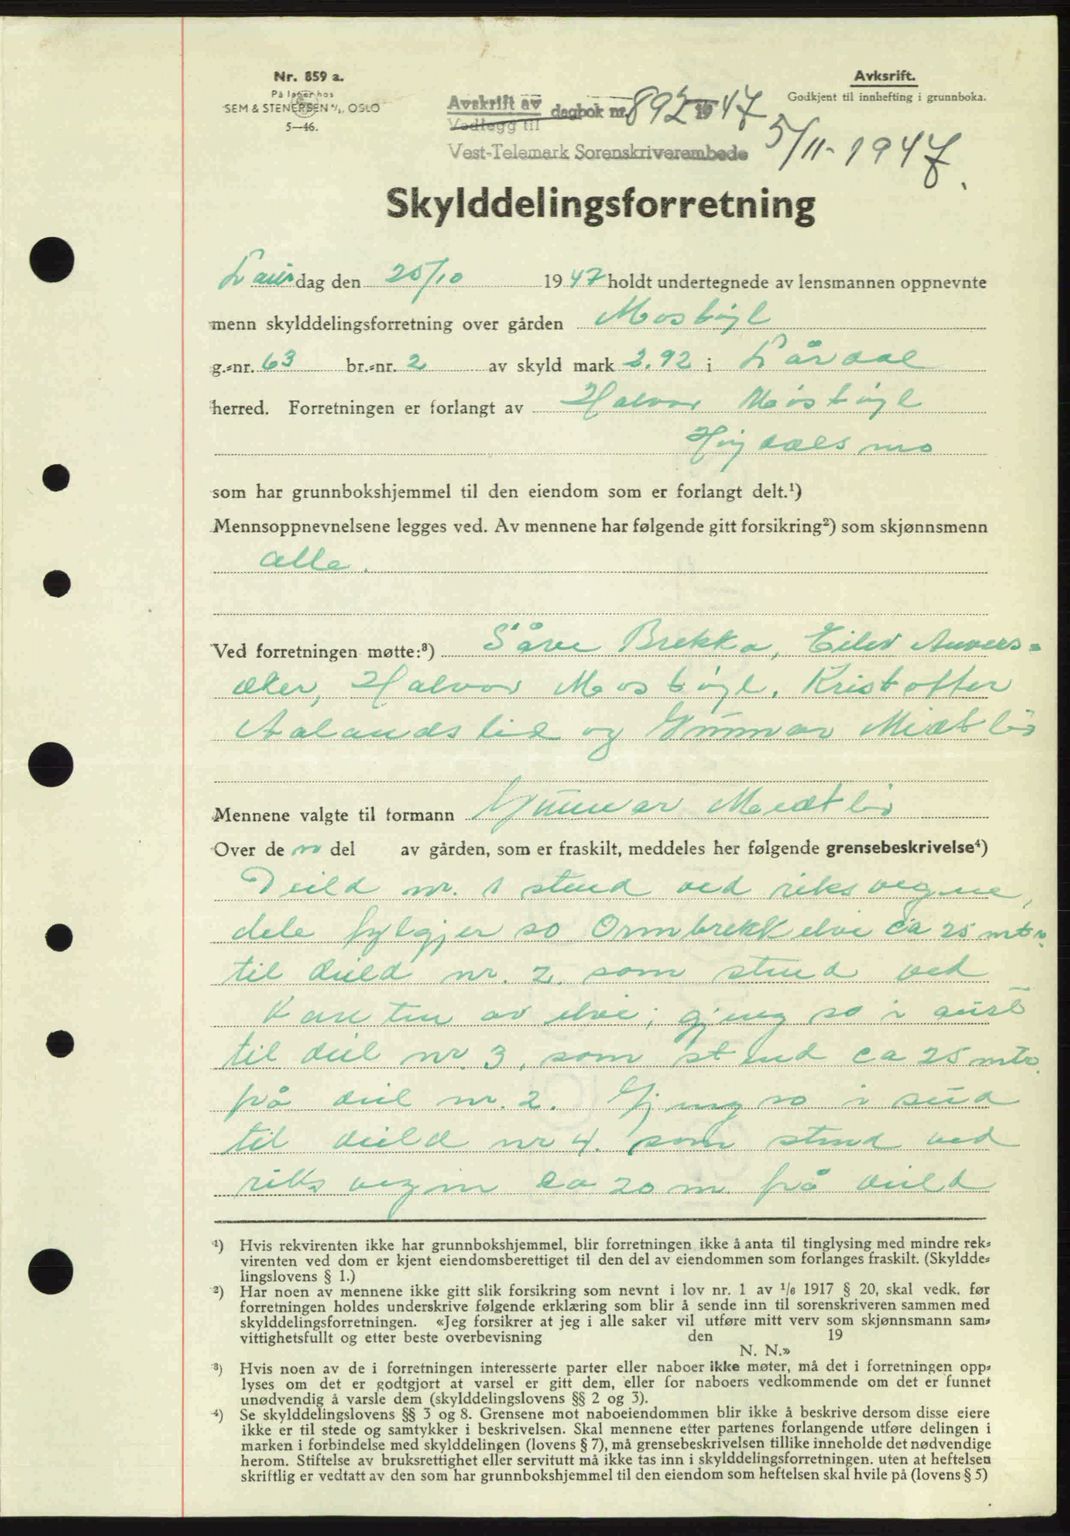 Nr. 859 a.
På lager hos
SEM & STENERSEN A/S, OSLO
5—46.
Avskrift av
Vedlegg til
dagbok nr. 892 1947
Vest-Telemark Sorenskriverembede
5/11-1947.
Avksrift.
Godkjent til innhefting i grunnboka.
Skylddelingsforretning
Laurdag den 25/10 1947 holdt undertegnede av lensmannen oppnevnte
menn skylddelingsforretning over gården Mosbøyl
g.-nr. 63 br.-nr. 2 av skyld mark 3.92 i Lårdal
herred. Forretningen er forlangt av Halvor Mosbøyl
Høydalsmo
som har grunnbokshjemmel til den eiendom som er forlangt delt.¹)
Mennsoppnevnelsene legges ved. Av mennene har følgende gitt forsikring²) som skjønnsmenn
alle.
Ved forretningen møtte:³) Såve Brekka, Eilev
Halvor Mosbøyl, Kristoffer
Aalandslid og Gunnar Midtbø
Mennene valgte til formann Gunnar Midtbø
Over de del av gården, som er fraskilt, meddeles her følgende grensebeskrivelse⁴)
Deild nr. 1 stend ved riksvegen,
dele fylgjer so Ormbrekkelvi ca 25 mtr.
til deild nr. 2. som stend ved
kanten av elvi; gjeng so i aust
til deil nr. 3, som stend ca 25 mtr.
frå deil nr. 2. Gjeng so i sud
til deild nr 4. som stend ved
riksvegen ca 20 m. frå deild
¹) Hvis rekvirenten ikke har grunnbokshjemmel, blir forretningen ikke å anta til tinglysing med mindre rek-
virenten ved dom er kjent eiendomsberettiget til den del av eiendommen som forlanges fraskilt. (Skyldde-
lingslovens § 1.)
²) Har noen av mennene ikke gitt slik forsikring som nevnt i lov nr. 1 av 1/6 1917 § 20, skal vedk. før
forretningen holdes underskrive følgende erklæring som blir å sende inn til sorenskriveren sammen med
skylddelingsforretningen. «Jeg forsikrer at jeg i alle saker vil utføre mitt verv som skjønnsmann sam-
vittighetsfullt og etter beste overbevisning den 19
N. N.»
³) Hvis noen av de i forretningen interesserte parter eller naboer ikke møter, må det i forretningen opp-
lyses om det er godtgjort at varsel er gitt dem, eller for naboers vedkommende om det er funnet
unødvendig å varsle dem (skylddelingslovens §§ 2 og 3).
⁴) Se skylddelingslovens §§ 3 og 8. Grensene mot naboeiendommen blir ikke å beskrive dersom disse eiere
ikke er til stede og samtykker i beskrivelsen. Skal mennene etter partenes forlangende utføre delingen i
marken i forbindelse med skylddelingen (lovens § 7), må grensebeskrivelsen tillike inneholde det nødvendige
herom. Stiftelse av bruksrettighet eller servitutt må ikke tas inn i skylddelingsforretningen. uten at heftelsen
skriftlig er vedtatt av den som har grunnbokshjemmel til den eiendom som heftelsen skal hvile på (lovens § 5)